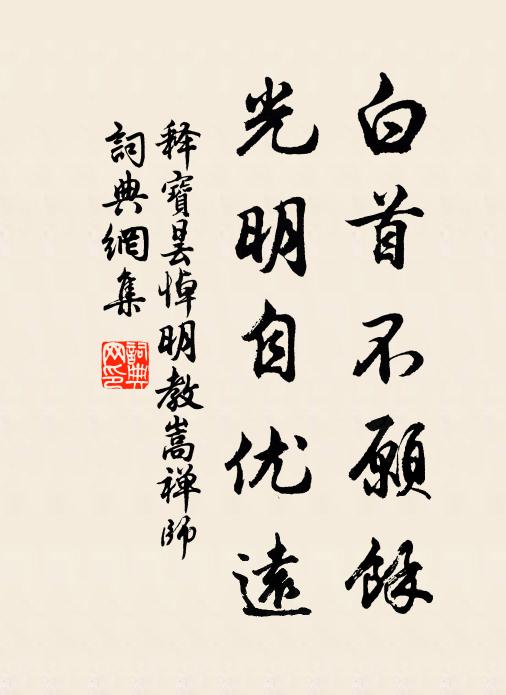 白首不願餘
光明自优遠
释寶曇悼明教嵩禅师
詞典網集
詞典网印